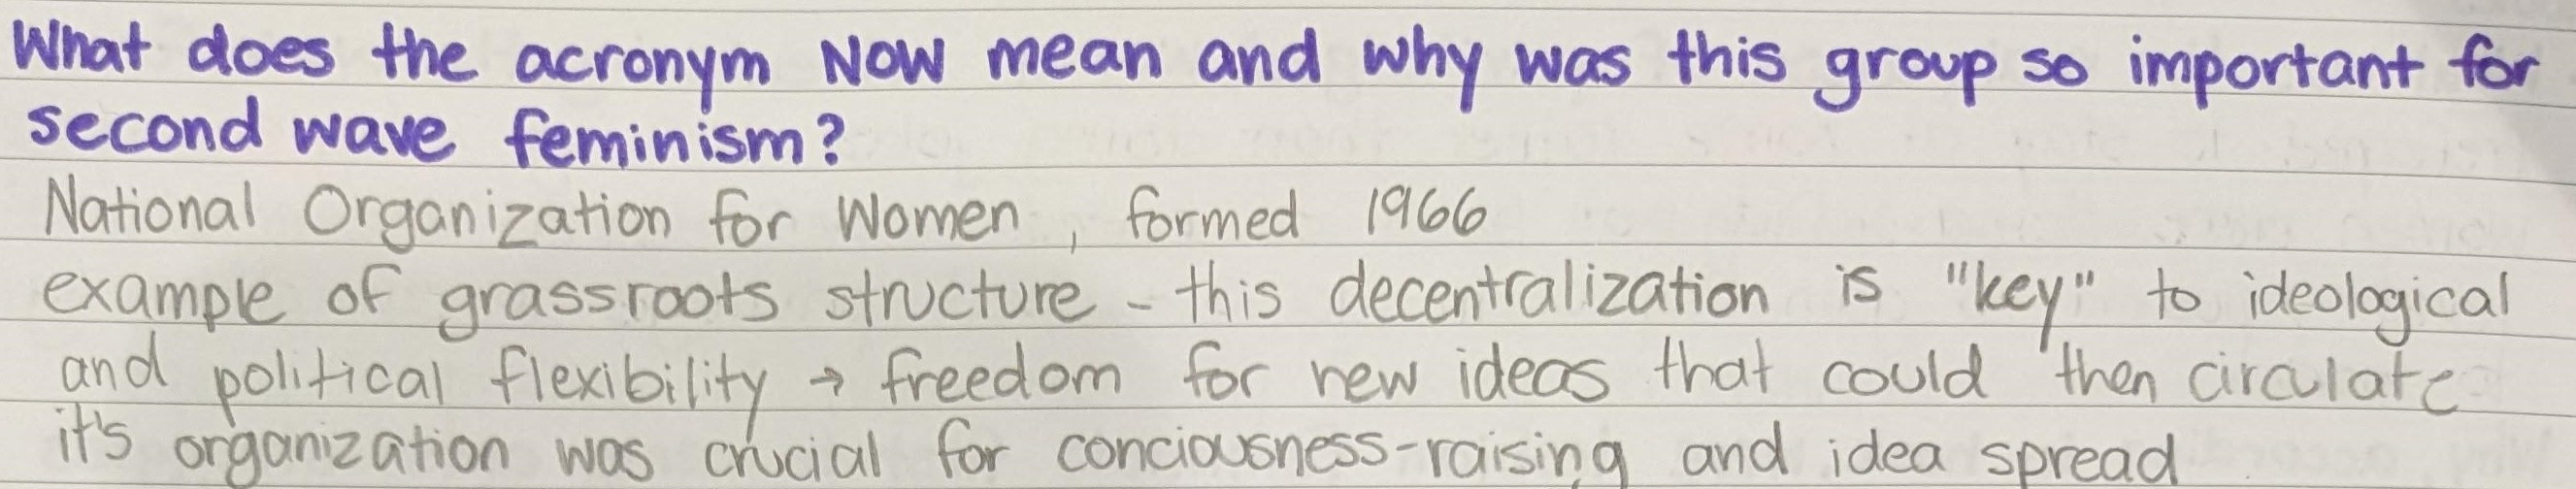 What does the acronym NOW mean and why was this group so important for
second wave feminism?
National Organization for Women, formed 1966
example of grassroots structure - this decentralization is "key" to ideological
and political flexibility → freedom for new ideas that could then circulate
it's organization was crucial for conciousness-raising and idea spread